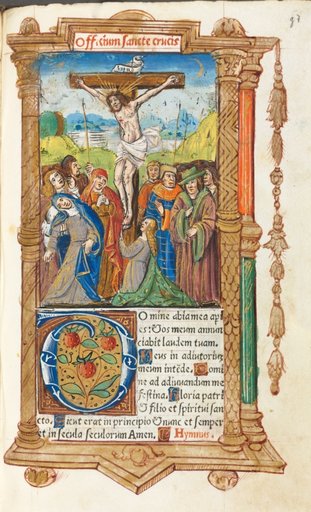 Officium sancte crucis
INRI
Domine labia mea aꝑi
es: Et os meum annun
ciabit laudem tuam.
Deus in adiutoriū
meum intēde. Domi
ne ad adiuuandum me
festina. Gloria patri
⁊ filio et spiritui san
cto. Sicut erat in principio ⁊ nunc et semper
et in secula seculorum Amen. Hymnus.